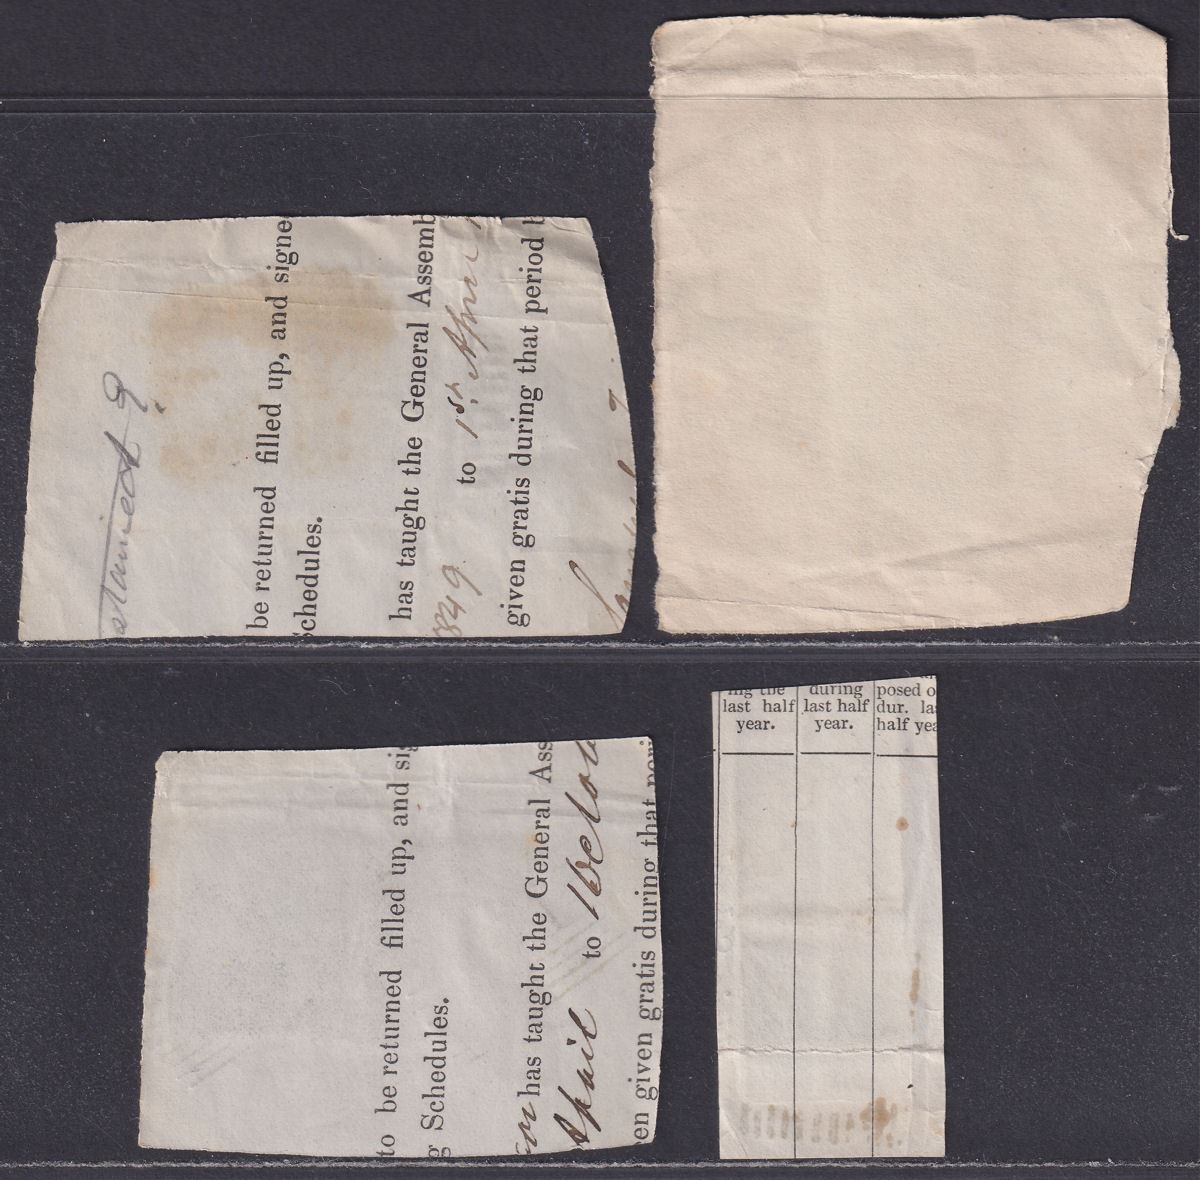 be returned filled up, and signe
chedules.
has taught the General Assemb
849 to 1st April
given gratis during that period b
to be returned filled up, and sig
g Schedules.
for has taught the General Ass
April to 1 Octob
en given gratis during that peri
ing the
last half
year.
during
last half
year.
posed o
dur. la
half yea